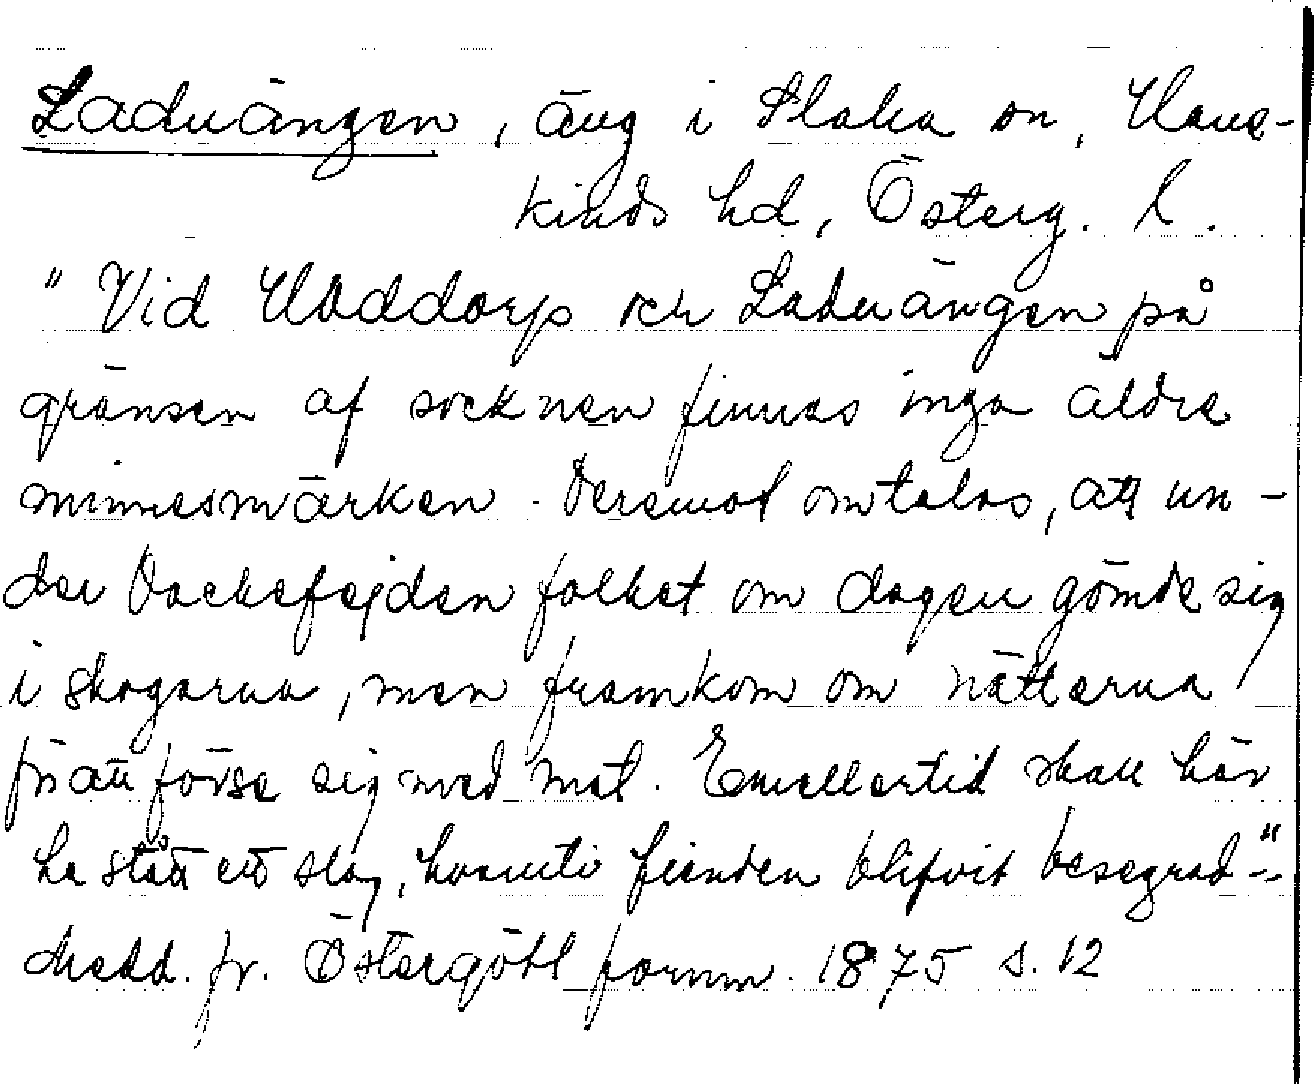 Laduängen, äng i Slaka sn, Hane-
kinds hd, Österg. l.
"Vid Uddorp och Laduängen på
gränsen af socknen finnas inga äldre
minnesmärken. Deremot omtalas, att un-
der Dackefejden folket om dagen gömde sig
i skogarna, men framkom om nätterna
för att förse sig med mat. Emellertid skall här
ha stått ett slag, hvaruti fienden blifvit besegrad"-
Medd. fr. Östergötl fornm. 1875 s. 12